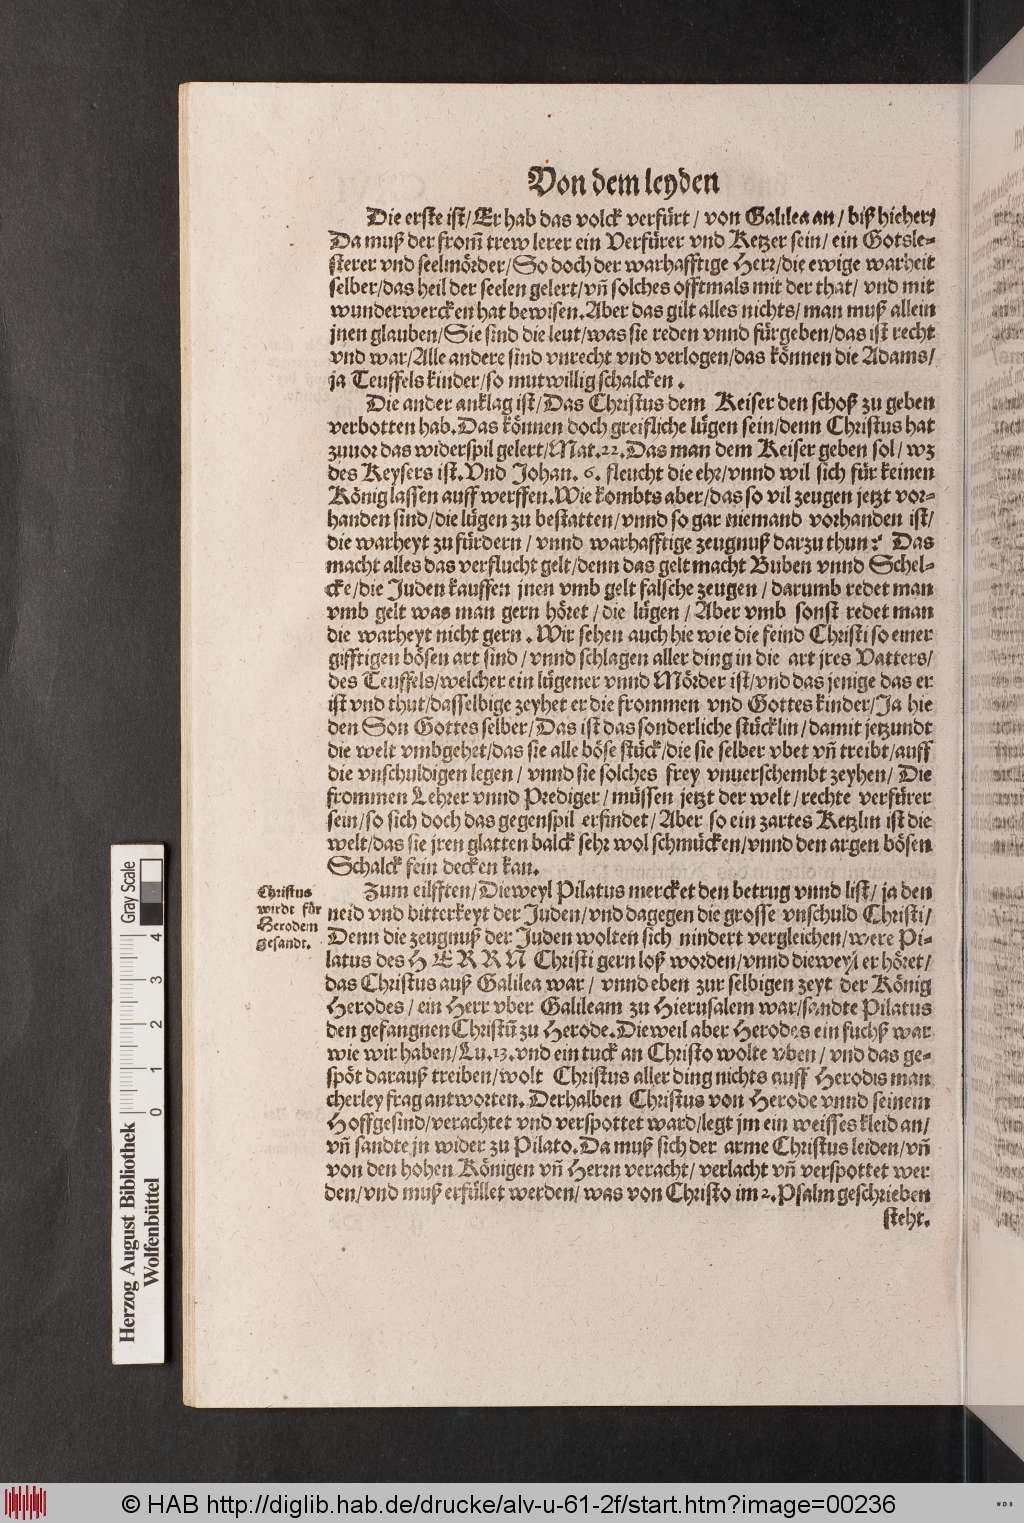 Von dem leyden
Die erste ist/ Er hab das volck verfürt/ von Galilea an/ biß hieher/
Da muß der from̃ trew lerer ein Verfürer vnd Ketzer sein/ ein Gotsle-
sterer vnd seelmörder/ So doch der warhafftige Herr/ die ewige warheit
selber/ das heil der seelen gelert/ vñ solches offtmals mit der that/ vnd mit
wunderwercken hat bewisen. Aber das gilt alles nichts/ man muß allein
jnen glauben/ Sie sind die leut/ was sie reden vnnd fürgeben/ das ist recht
vnd war/ Alle andere sind vnrecht vnd verlogen/ das können die Adams/
ja Teuffels kinder/ so mutwillig schalcken.
Die ander anklag ist/ Das Christus dem Keiser den schoß zu geben
verbotten hab. Das können doch greifliche lügen sein/ denn Christus hat
zuuor das widerspil gelert/ Mat. 22. Das man dem Keiser geben sol/ wz
des Keysers ist. Vnd Johan. 6. fleucht die ehr/ vnnd wil sich für keinen
König lassen auff werffen. Wie kombts aber/ das so vil zeugen jetzt vor-
handen sind/ die lügen zu bestatten/ vnnd so gar niemand vorhanden ist/
die warheyt zu fürdern/ vnnd warhafftige zeugnuß darzu thun? Das
macht alles das verflucht gelt/ denn das gelt macht Buben vnnd Schel-
cke/ die Juden kauffen jnen vmb gelt falsche zeugen/ darumb redet man
vmb gelt was man gern höret/ die lügen/ Aber vmb sonst redet man
die warheyt nicht gern. Wir sehen auch hie wie die feind Christi so einer
gifftigen bösen art sind/ vnnd schlagen aller ding in die art jres Vatters/
des Teuffels/ welcher ein lügener vnnd Mörder ist/ vnd das jenige das er
ist vnd thut/ dasselbige zeyhet er die frommen vnd Gottes kinder/ Ja hie
den Son Gottes selber/ Das ist das sonderliche stücklin/ damit jetzundt
die welt vmbgehet/ das sie alle böse stück/ die sie selber vbet vñ treibt/ auff
die vnschuldigen legen/ vnnd sie solches frey vnuerschembt zeyhen/ Die
frommen Lehrer vnnd Prediger/ müssen jetzt der welt/ rechte verfürer
sein/ so sich doch das gegenspil erfindet/ Aber so ein zartes Ketzlin ist die
welt/ das sie jren glatten balck sehr wol schmücken/ vnnd den argen bösen
Schalck fein decken kan.
Christus
wirdt für
Herodem
gesandt.
Zum eilfften/ Dieweyl Pilatus mercket den betrug vnnd list/ ja den
neid vnd bitterkeyt der Juden/ vnd dagegen die grosse vnschuld Christi/
Denn die zeugnuß der Juden wolten sich nindert vergleichen/ were Pi-
latus des HERRN Christi gern loß worden/ vnnd dieweyl er höret/
das Christus auß Galilea war/ vnnd eben zur selbigen zeyt der König
Herodes/ ein Herr vber Galileam zu Hierusalem war/ sandte Pilatus
den gefangnen Christũ zu Herode. Dieweil aber Herodes ein fuchß war
wie wir haben/ Lu. 13. vnd ein tuck an Christo wolte vben/ vnd das ge-
spöt darauß treiben/ wolt Christus aller ding nichts auff Herodis man
cherley frag antworten. Derhalben Christus von Herode vnnd seinem
Hoffgesind/ verachtet vnd verspottet ward/ legt jm ein weisses kleid an/
vñ sandte jn wider zu Pilato. Da muß sich der arme Christus leiden/ vñ
von den hohen Königen vñ Herrn veracht/ verlacht vñ verspottet wer
den/ vnd muß erfüllet werden/ was von Christo im 2. Psalm geschrieben
steht.
Herzog August Bibliothek
Wolfenbüttel
Gray Scale
0 1 2 3 4
© HAB http://diglib.hab.de/drucke/alv-u-61-2f/start.htm?image=00236